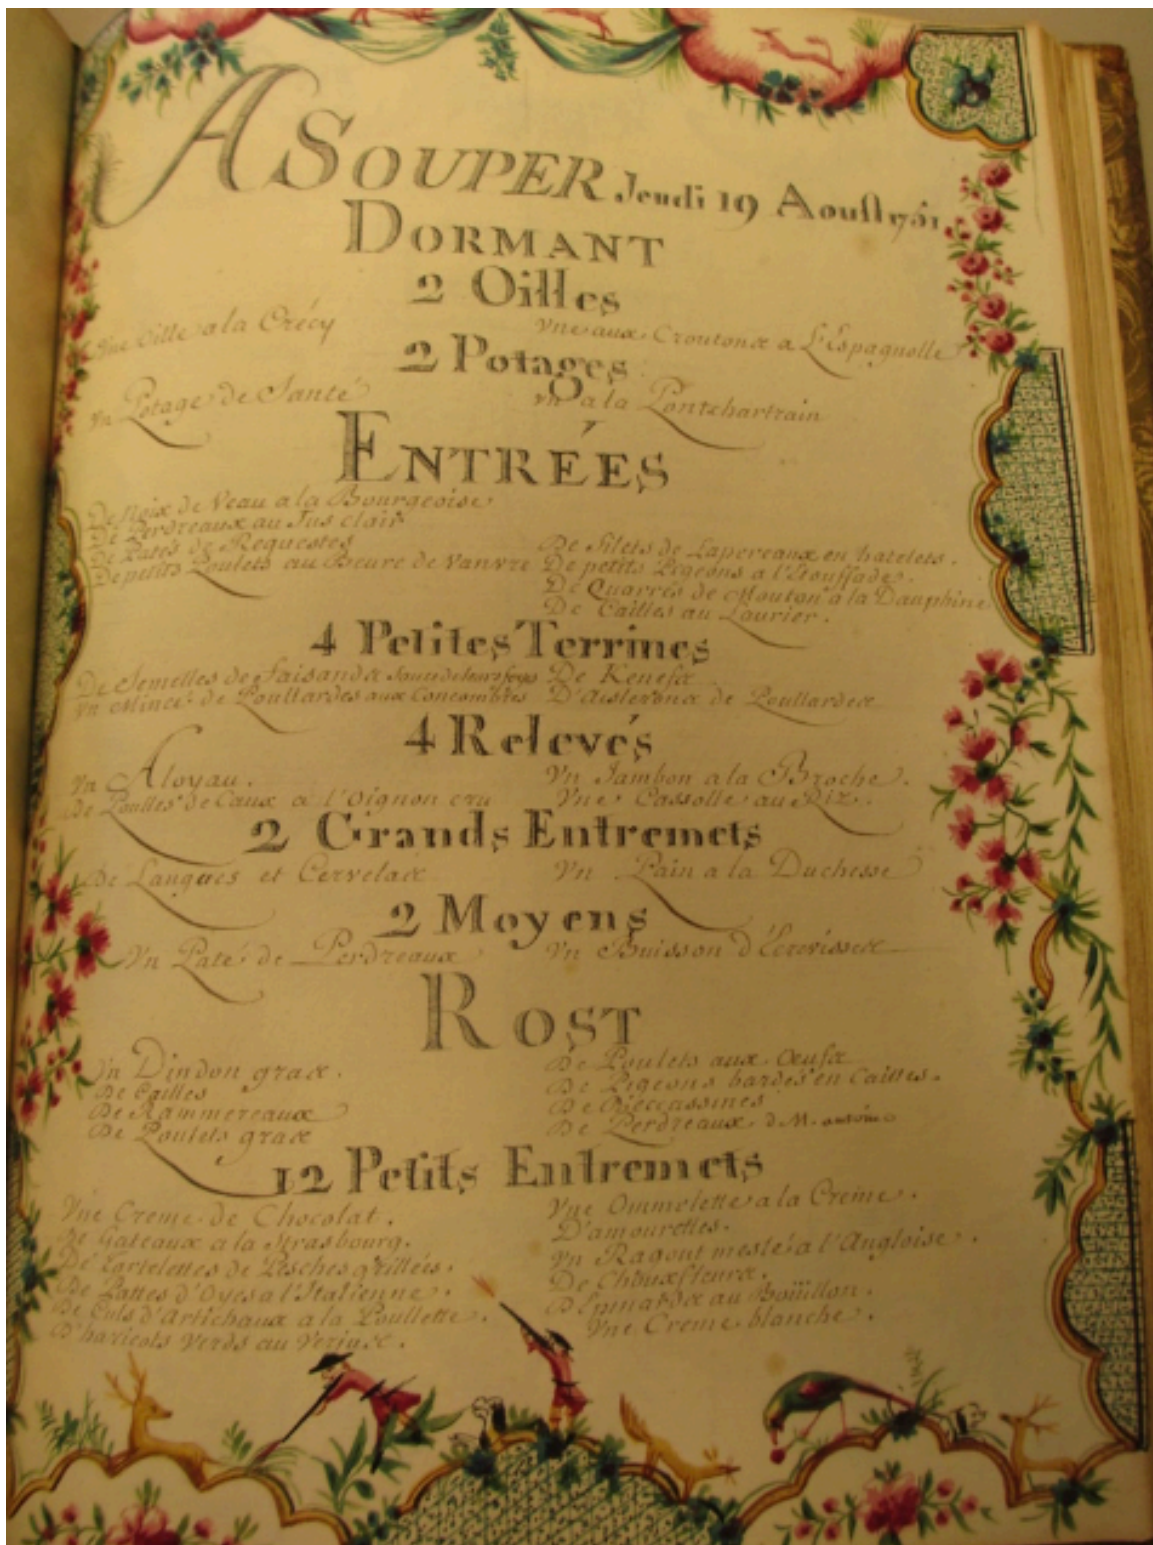 A SOUPER Jeudi 19 Aoust 1751
DORMANT
2 Oilles
Une Oille a la Crécy
Une aux Croutons a L'Espagnolle
2 Potages
Un Potage de Santé
Un a la Pontchartrain
ENTRÉES
De Noix de Veau a la Bourgeoise
De Perdreaux au Jus clair
De Patés de Requestes
De petits Poulets au Beure de Vanvre
De filets de Lapereaux en hatelets.
De petits Pigeons a l'Etouffade.
De Quarrés de Mouton a la Dauphine
De Cailles au Laurier.
4 Petites Terrines
De Semelles de faisands
Un Mincé de Poullardes aux Concombres
De Kenefs
D'Aislerons de Poullardes
4 Relevés
Un Aloyau.
De Poulles de Caux a l'Oignon cru
Un Jambon a la Broche.
Une Cassolle au Riz.
2 Grands Entremets
De Langues et Cervelats
Un Pain a la Duchesse
2 Moyens
Un Paté de Perdreaux
Un Buisson d'Ecrevisses
ROST
Un Dindon gras.
De Cailles
De Rammereaux
De Poulets gras
De Poulets aux Oeufs
De Pigeons bardés en Cailles.
De Béccassines
De Perdreaux. d. M.
12 Petits Entremets
Une Creme de Chocolat.
De Gateaux a la Strasbourg.
De Tartelettes de Pesches grillées.
De Pattes d'Oyes a l'Italienne.
De Culs d'Artichaux a la Poullette.
D'haricots Verds au Verjus.
Une Ommelette a la Creme.
D'amourettes.
Un Ragout meslé a l'Angloise.
De Chouxfleurs.
D'Epinards au Boüillon.
Une Creme blanche.